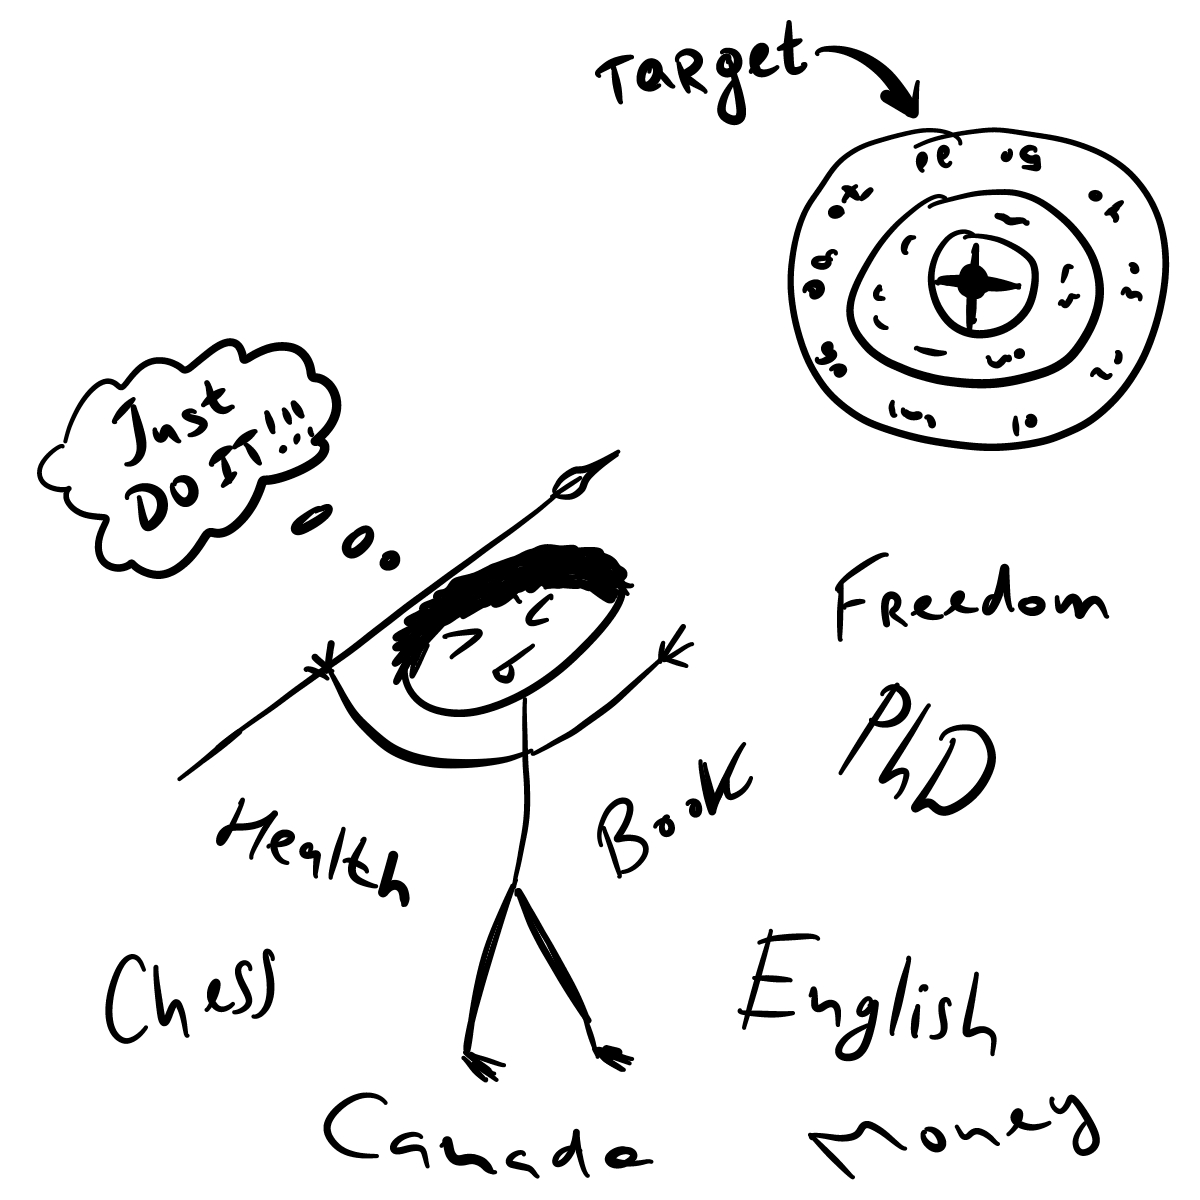 Target
Just
DO IT!!!
Freedom
PhD
Book
Health
Chess
English
Canada
Money